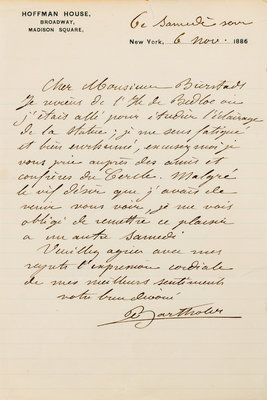 HOFFMAN HOUSE,
BROADWAY,
MADISON SQUARE,
Ce Samedi soir
New York, 6 nov. 1886
Cher Monsieur Bierstads
Je reviens de l'Ile de Bedloe ou
j'étais allé pour étudier l'éclairage
de la statue; je me sens fatigué
et bien enrhumé, excusez moi je
vous prie auprès des amis et
confrères du Cercle. Malgré
le vif désir que j'avais de
venir vous voir, je me vois
obligé de remettre ce plaisir
a un autre Samedi
Veuillez agréer avec mes
regrets l'expression cordiale
de mes meilleurs sentiments
votre bien dévoué
Bartholdi